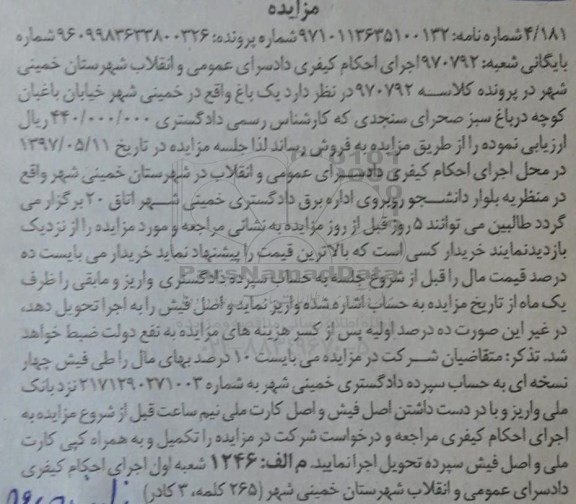 مزایده
۴/۱۸۱ شماره نامه: ۹۷۱۰۱۱۳۶۳۵۱۰۰۱۳۲ شماره پرونده: ۹۶۰۹۹۸۳۶۳۳۸۰۰۳۲۶ شماره
بایگانی شعبه: ۹۷۰۷۹۲ اجرای احکام کیفری دادسرای عمومی و انقلاب شهرستان خمینی
شهر در پرونده کلاسه ۹۷۰۷۹۲ در نظر دارد یک باغ واقع در خمینی شهر خیابان باغبان
کوچه درباغ سبز صحرای سنجدی که کارشناس رسمی دادگستری ۴۴۰/۰۰۰/۰۰۰ ریال
ارزیابی نموده را از طریق مزایده به فروش رساند لذا جلسه مزایده در تاریخ ۱۳۹۷/۰۵/۱۱
در محل اجرای احکام کیفری دادسرای عمومی و انقلاب در شهرستان خمینی شهر واقع
در منظریه بلوار دانشجو روبروی اداره برق دادگستری خمینی شهر اتاق ۲۰ برگزار می
گردد طالبین می توانند ۵ روز قبل از روز مزایده به نشانی مراجعه و مورد مزایده را از نزدیک
بازدیدنمایند خریدار کسی است که بالاترین قیمت را پیشنهاد نماید خریدار می بایست ده
درصد قیمت مال را قبل از شروع جلسه به حساب سپرده دادگستری واریز و مابقی را ظرف
یک ماه از تاریخ مزایده به حساب اشاره شده واریز نماید و اصل فیش را به اجرا تحویل دهد،
در غیر این صورت ده درصد اولیه پس از کسر هزینه های مزایده به نفع دولت ضبط خواهد
شد. تذکر: متقاضیان شرکت در مزایده می بایست ۱۰ درصد بهای مال را طی فیش چهار
نسخه ای به حساب سپرده دادگستری خمینی شهر به شماره ۲۱۷۱۲۹۰۲۷۱۰۰۳ نزد بانک
ملی واریز و با در دست داشتن اصل فیش و اصل کارت ملی نیم ساعت قبل از شروع مزایده به
اجرای احکام کیفری مراجعه و درخواست شرکت در مزایده را تکمیل و به همراه کپی کارت
ملی و اصل فیش سپرده تحویل اجرا نمایید. م الف: ۱۲۴۶ شعبه اول اجرای احکام کیفری
دادسرای عمومی و انقلاب شهرستان خمینی شهر (۲۶۵ کلمه، ۳ کادر)
ParsNamadData